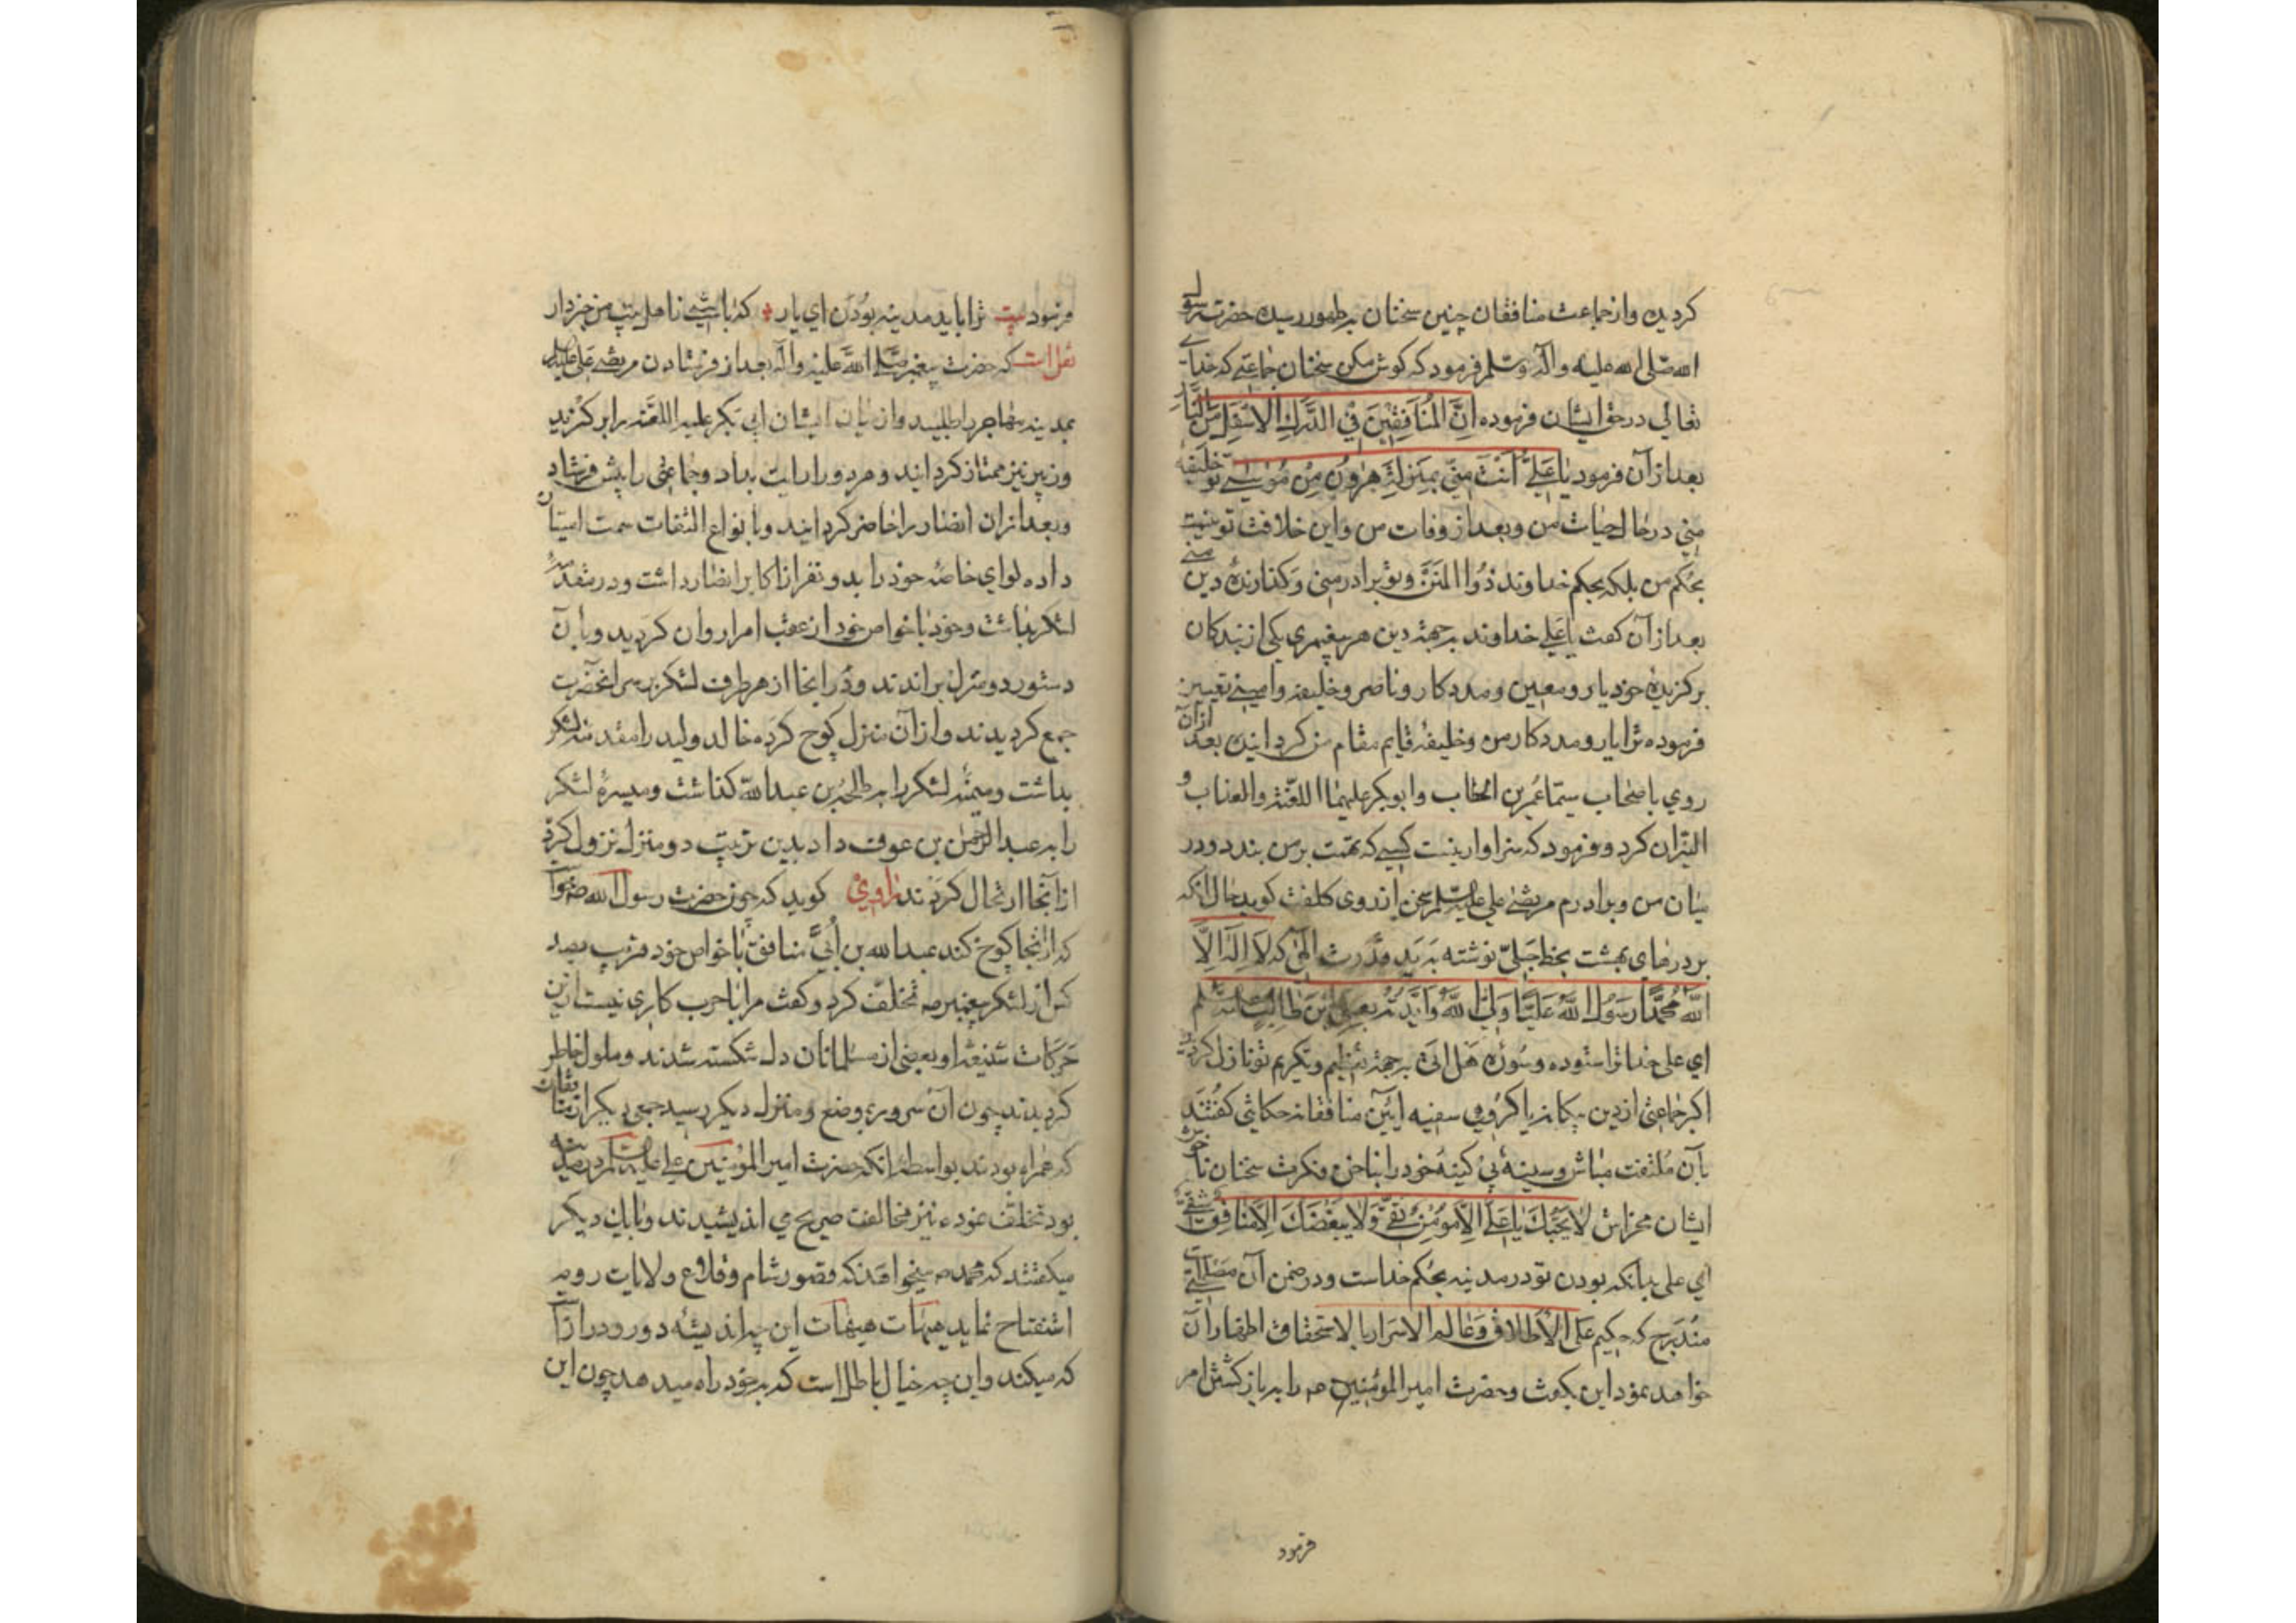 کردیده وازجماعت منافقان چنین سخنان بظهور رسیده حضرت رسول
الله صلی الله علیه وآله وسلم فرمود که کوش مکن سخنان جماعتی که خدای
تعالی در حق ایشان فرموده اِنَّ الْمُنَافِقِینَ فِی الدَّرَكِ الْاَسْفَلِ مِنَ النَّارِ
بعد ازآن فرمود یا عَلِیُّ اَنْتَ مِنِّی بِمَنْزِلَةِ هٰرُونَ مِنْ مُوسٰی تو خلیفه
منی در حال حیات من و بعد از وفات من واین خلافت تو نیست
بحکم من بلکه بحکم خداوند ذُوالمنن و تو برادر منی وکذارندهٔ دین منی
بعد ازآن کفت یا عَلی خداوند بر جهة دین هر پیغمبری یکی از بندکان
برکزیدهٔ خود یار ومعین ومددکار و ناصر وخلیفه وامینی تعیین
فرموده ترا یار ومددکار من وخلیفه قایم مقام من کردانیده بعد ازآن
روی باصحاب سیّما عُمَر بن الخطاب وابوبکر علیهما اللعنة والعذاب و
النیران کرد و فرمود که سزاوار نیست کسی که تهمت بر من بندد ودر
میان من وبرادرم مرتضی علی علیه السلم سخن از روی کلفت کوید حال انکه
بر درهای بهشت بخط جَلیّ نوشته به ید قدرت الهی که لَا اِلٰهَ اِلَّا
اللّٰه مُحَمَّدًا رَسُولُ اللّٰه عَلِیًّا وَلِیُّ اللّٰه وَاَیَّدتُهُ بِعَلِیِّ ابْنِ طَالِبٍ علیه السلم
ای علی خدا ترا ستوده وسُورهٔ هَل اتی بر جهة تعظیم وتکریم تو نازل کردیده
اکر جماعتی از دین بیکانه یا کروهی سفیه آئین منافقانه حکایتی کفتند
بآن مُلتفت مباش وسینهٔ بی کینهٔ خود را بناخن فکرت سخنان ناخوش
ایشان مخراش لَا یُحِبُّكَ یَا عَلِیُّ اِلَّا مُومِنٌ تَقِیٌّ وَلَا یُبْغِضُكَ اِلَّا مُنَافِقٌ شَقِیٌّ
ای علی بدانکه بودن تو در مدینه بحُکم خداست ودر ضمن آن مصلحتی
مُندَرج که حکیم عَلَی الاطلاق وعَالم الاسرار بالاستحقاق اظهار آن
خواهد نمود این بکفت وحضرت امیر المؤمنین عم را به باز کشتن امر
فرمود
فرمود بیت ترا باید مدینه بُودن ای یار که باشی زاهل بیت من خبردار
نقل است که حضرت پیغمبر صلی الله علیه وآله بعد از فرستادن مرتضی علی علیه السلم
بمدینه مهاجر را طلبید واز میان ایشان ابی بکر علیه اللعنه را برکزید
وزبیر نیز ممتاز کردانید و هر دو را رایت بداد وجماعتی را پیش فرستاد
وبعد ازان انصار را حاضر کردانید وبا نواع التفات سمت امتیاز
داده لوای خاصهٔ خود را بدو نفر از اکابر انصار داشت ودر مقدمه
لشکر بداشت وخود باخواص خود از عقب امرا روان کردید وبا آن
دستور دو منزل براندند ودر انجا از هر طرف لشکر بر سر انحضرت
جمع کردیدند وازآن منزل کوچ کرده خالد ولید را مقدمه لشکر
بداشت ومیمنهٔ لشکر را به طلحة بن عبدالله کذاشت ومیسرهٔ لشکر
را به عبدالرحمن بن عوف داد بدین ترتیب دو منزل نزول کرد
از آنجا ارتحال کردند راوی کوید که چون حضرت رسول الله خواست
که ازانجا کوچ کند عبدالله بن اُبیّ منافق باخواص خود قریب بصد
کس از لشکر پیغمبر صم تخلّف کرد وکفت مرا با حرب کاری نیست ازین
حَرَکات شنیعهٔ او بعضی از مسلمانان دل شکسته شدند وملول خاطر
کردیدند چون آن سرور بموضع ومنزل دیکر رسید جمعی دیکر از منافقان
که همراه بودند بواسطه انکه حضرت امیر المؤمنین علی علیه السلم در مدینه
بود تخلّف نموده نیز مخالفت صریح می اندیشیدند وبا یکدیکر
میکفتند که محمد صم میخواهد که قصور شام وقلاع ولایات رومیه
استفتاح نماید هیهات هیهات این چه اندیشه دور ودرازاست
که میکند واین چه خیال باطل است که بخود راه میدهد چون این